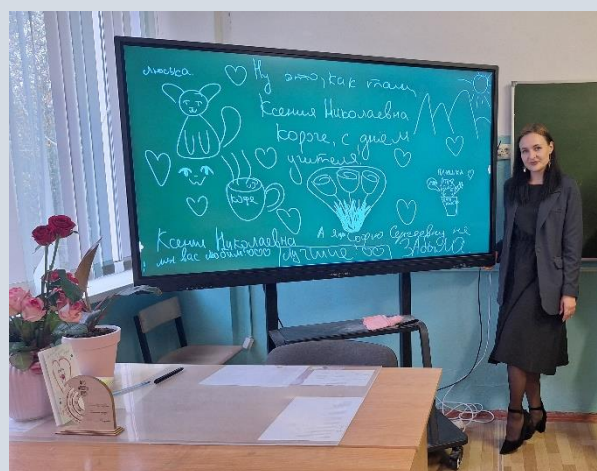 люська
Ну это, как там,
Ксения Николаевна
короче, с днем
учителя!
кофе
плюшка
Ксения Николаевна
мы вас любим
А я Софию Сергеевну не
забыла
лучшие